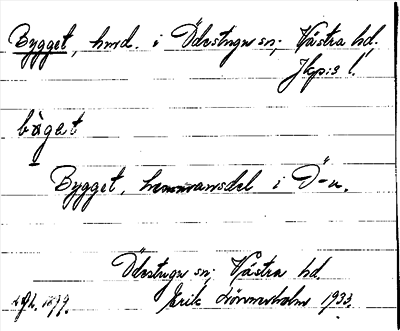 Bygget, hmd. i Ödestugu sn; Västra hd,
Jkp:s l.
by̆get
Bygget, hemmansdel i Ö-u.
Ödestugu sn; Västra hd.
Erik Lönnerholm 1933.